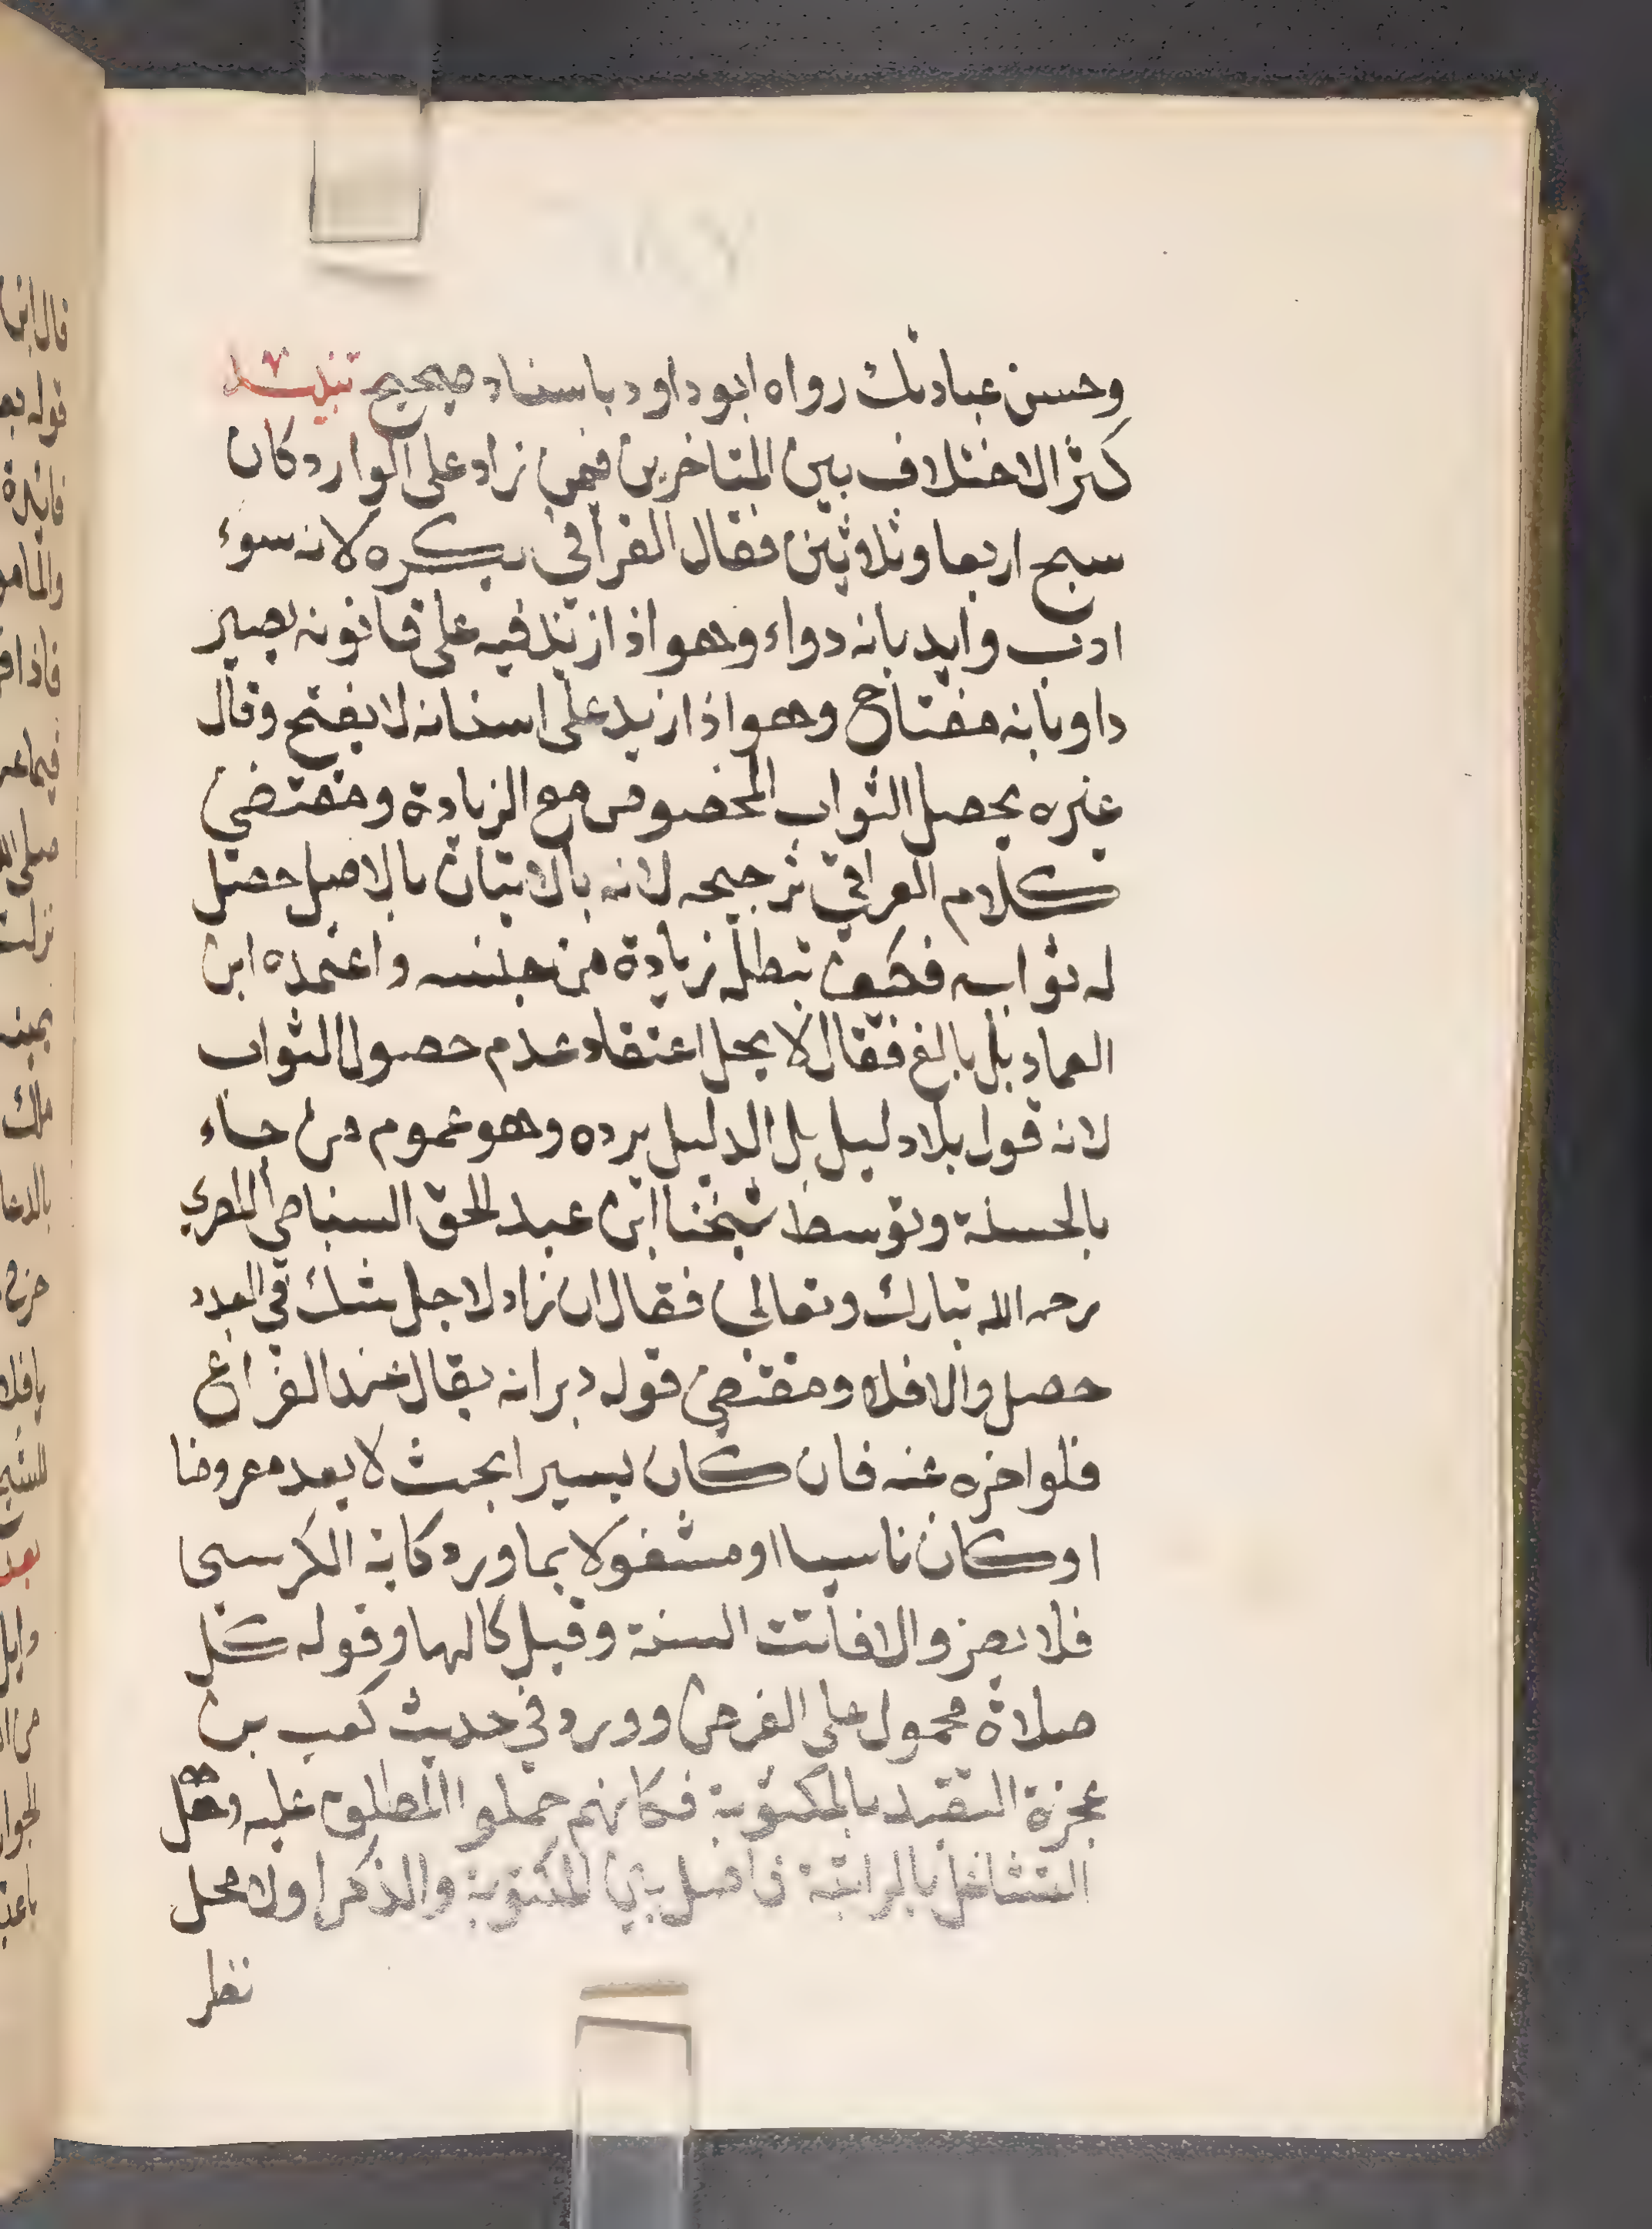 وحسن عبادتك رواه ابو داود باسناد صحيح تنبيه
كثر الاختلاف بين المتاخرين فيمن زاد على الوارد كان
سبح اربعا وثلاثين فقال القرافي يكره لانه سوء
ادب وايد بانه دواء وهو اذا زيد فيه على قانونه يصير
داء وبانه مفتاح وهو اذا زيد على اسنانه لا يفتح وقال
غيره يحصل الثواب المخصوص مع الزيادة ومقتضى
كلام العراقي ترجيحه لانه بالاتيان بالاصل حصل
له ثوابه فكيف تبطله زيادة من جنسه واعتمده ابن
العماد بل بالغ فقال لا يحل اعتقاد عدم حصول الثواب
لانه قول بلا دليل بل الدليل يرده وهو عموم من جاء
بالحسنة وتوسط شيخنا ابن عبد الحق السنباطي المصري
رحمه الله تبارك وتعالى فقال ان زاد لاجل شك في العدد
حصل والا فلا ومقتضى قوله دبر انه يقال عند الفراغ
فلو اخره عنه فان كان يسيرا بحيث لا يعد معرضا
او كان ناسيا او مشغولا بما ورد كاية الكرسي
فلا يضر والا فاتت السنة وقبل كمالها وقوله كل
صلاة محمول على الفرض وورد في حديث كعب بن
عجزة التقيد بالمكتوبة فكانهم حملوا المطلق عليه وهل
التشاغل بالراتبة فاصل بين المكتوبة والذكر اولا محل
نظر
قال ابن